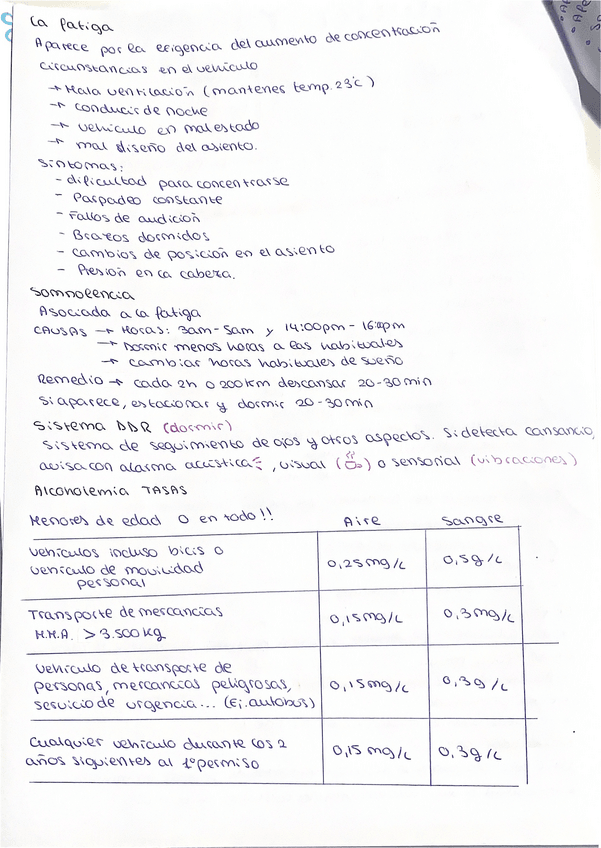 La fatiga
Aparece por la exigencia del aumento de concentración
Circunstancias en el vehículo
→ Mala ventilación (mantener temp. 23ºC)
→ conducir de noche
→ vehículo en mal estado
→ mal diseño del asiento.
Síntomas:
- dificultad para concentrarse
- Parpadeo constante
- Fallos de audición
- Brazos dormidos
- cambios de posición en el asiento
- Presión en la cabeza.
Somnolencia
Asociada a la fatiga
CAUSAS → Horas: 3am-5am y 14:00pm-16:00pm
→ Dormir menos horas a las habituales
→ cambiar horas habituales de sueño
Remedio → cada 2h o 200km descansar 20-30min
Si aparece, estacionar y dormir 20-30min
Sistema DDR (dormir)
Sistema de seguimiento de ojos y otros aspectos. Si detecta cansancio,
avisa con alarma acústica, visual ( ) o sensorial (vibraciones)
Alcoholemia TASAS
Menores de edad 0 en todo!! Aire Sangre
Vehículos incluso bicis o
vehículo de movilidad
personal 0,25mg/L 0,5g/L
Transporte de mercancías
M.M.A. > 3.500kg 0,15mg/L 0,3mg/L
Vehículo de transporte de
personas, mercancías peligrosas,
servicio de urgencia... (Ej. autobús) 0,15mg/L 0,3g/L
Cualquier vehículo durante los 2
años siguientes al 1º permiso 0,15mg/L 0,3g/L